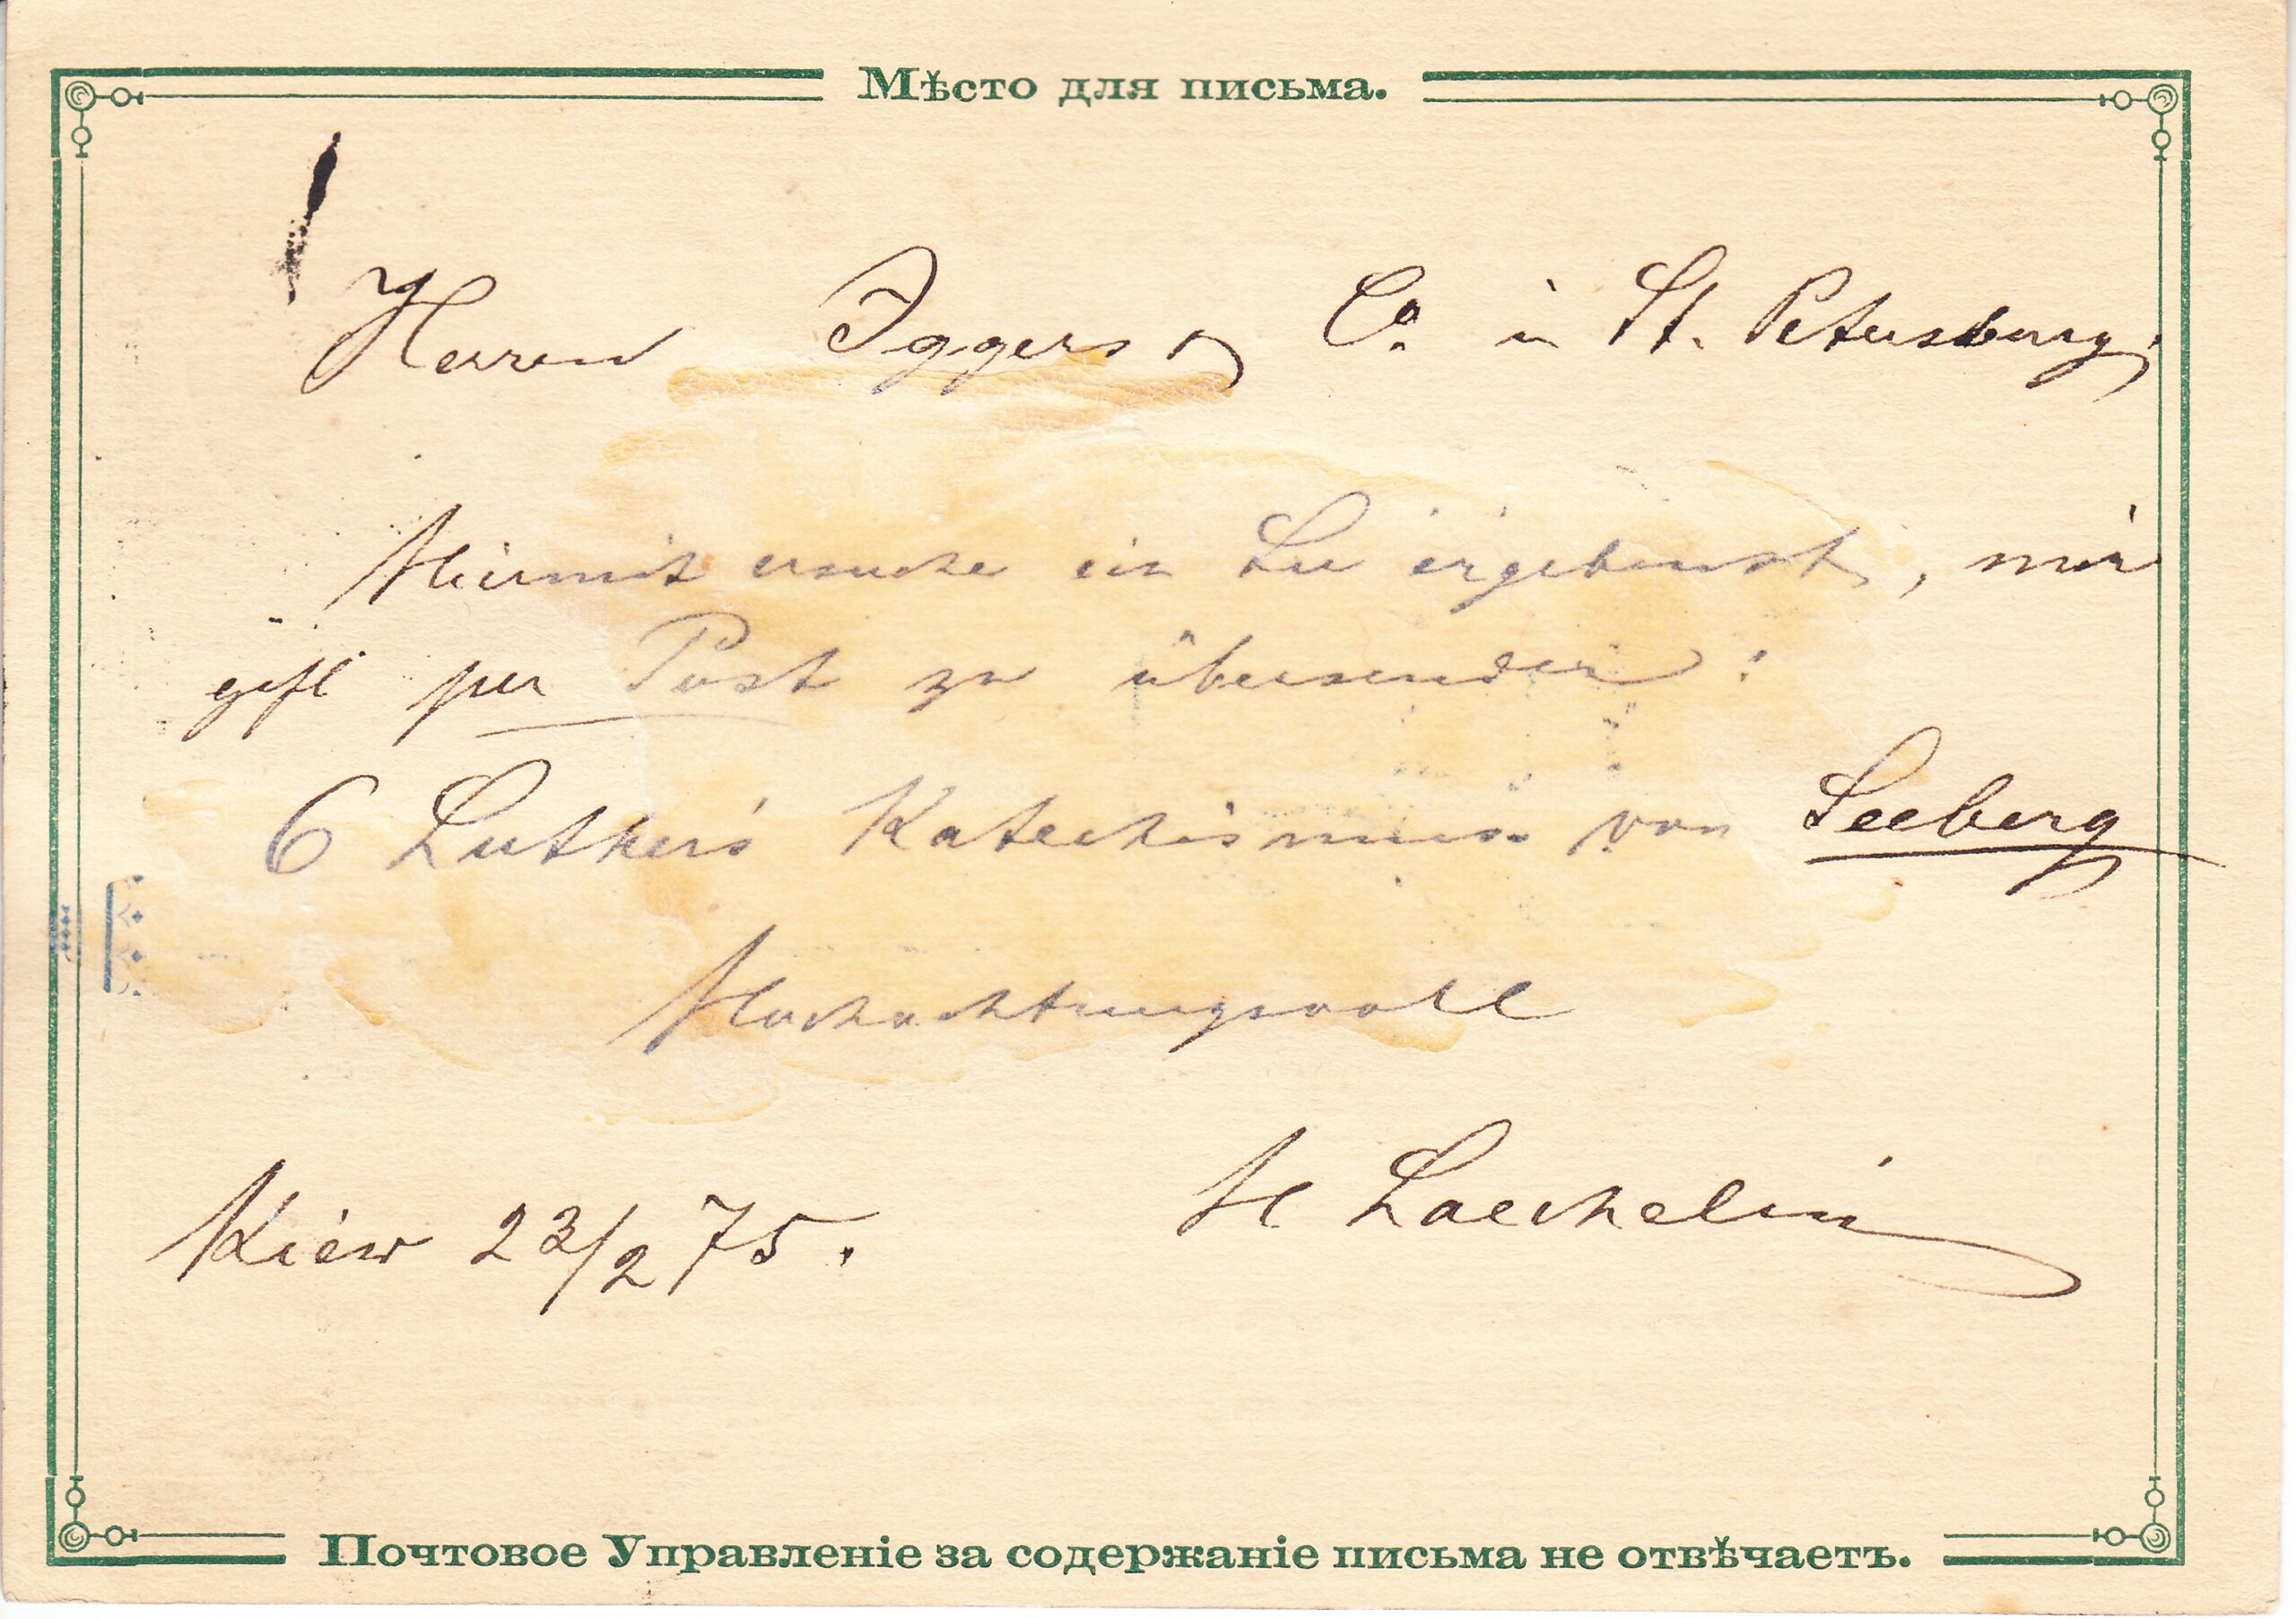 Мѣсто для письма.
Herren Iggers & Co. in St. Petersburg.
Hiermit ersuche ich Sie ergebenst, mir
gefl per Post zu übersenden:
6 Luther's Katechismus von Seeberg
Hochachtungsvoll
H Laechelin
Kiew 23/2 75.
Почтовое Управленіе за содержаніе письма не отвѣчаетъ.